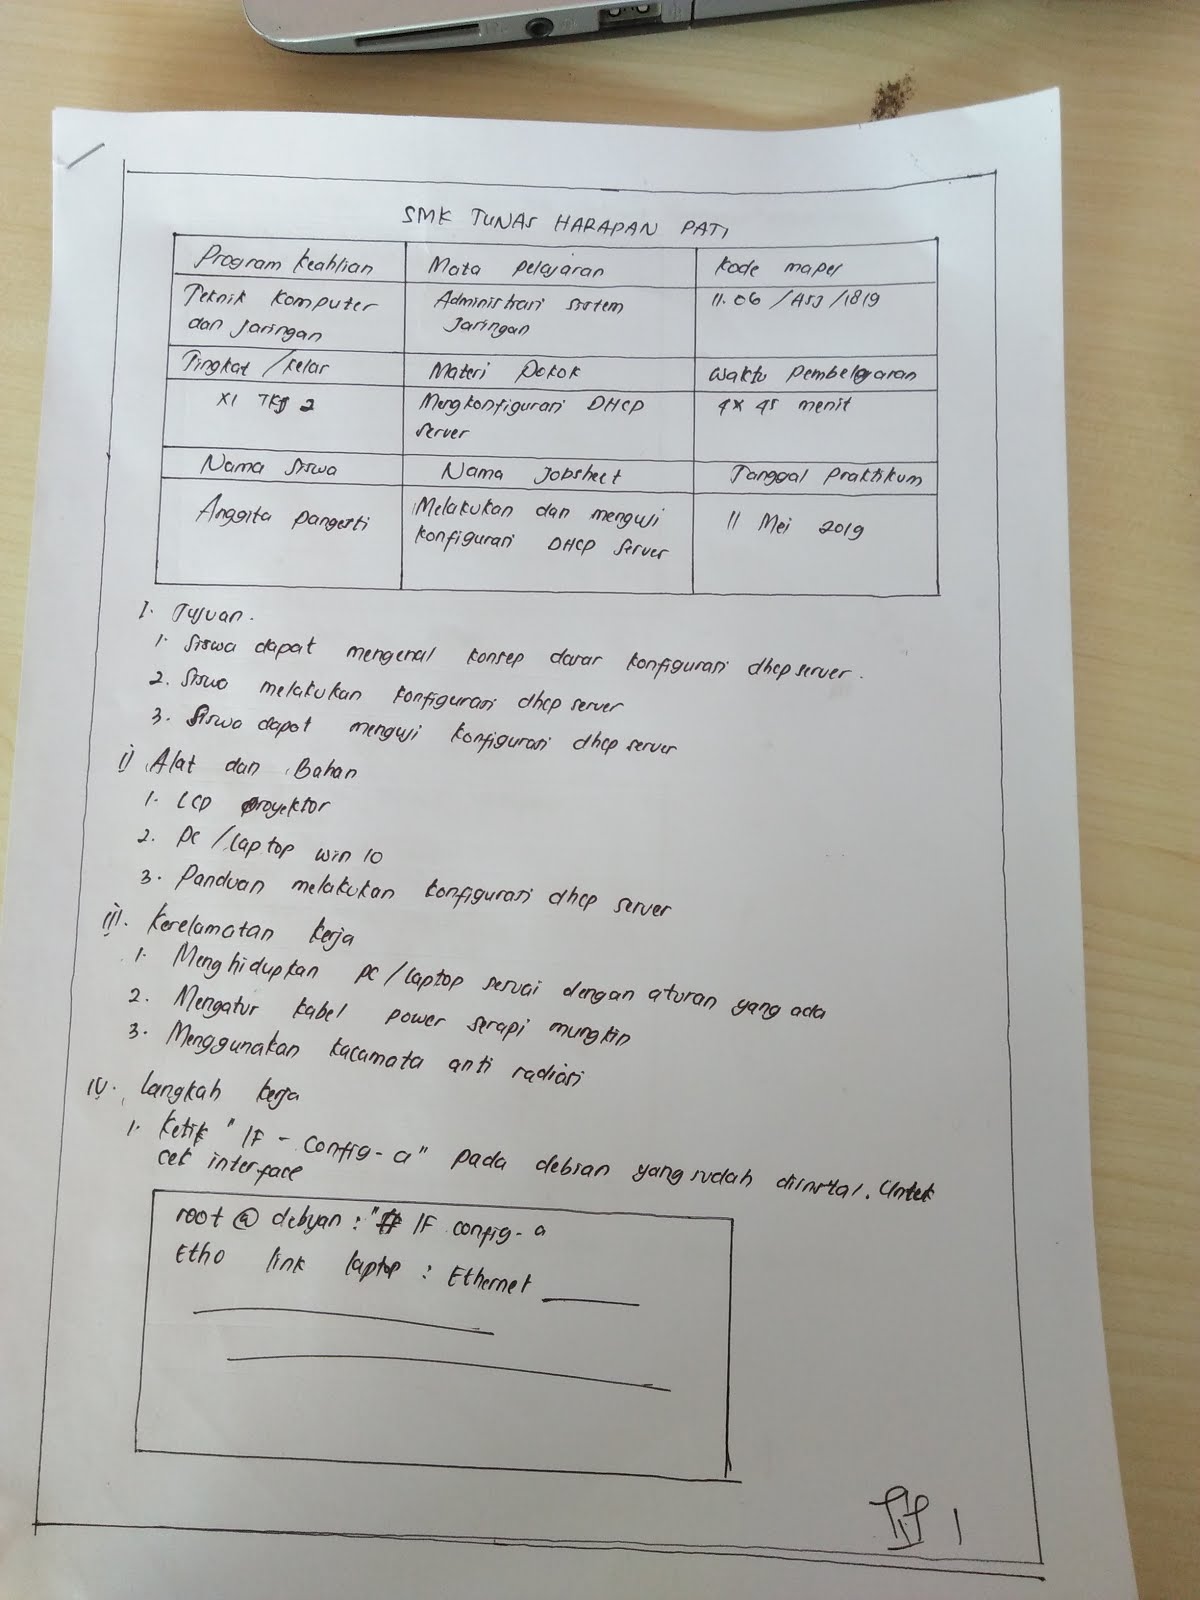 SMK TUNAS HARAPAN PATI
Program Keahlian Mata Pelajaran Kode maper
Teknik Komputer dan Jaringan Administrasi Sistem Jaringan 11.06 /ASJ/1819
Tingkat/Kelas Materi Pokok Waktu Pembelajaran
XI TKJ 2 Mengkonfigurasi DHCP Server 4x 45 menit
Nama Siswa Nama Jobsheet Tanggal Praktikum
Anggita pangesti Melakukan dan menguji konfigurasi DHCP Server 11 Mei 2019
I. Tujuan.
1. Siswa dapat mengenal konsep dasar konfigurasi dhcp server.
2. Siswa melakukan konfigurasi dhcp server
3. Siswa dapat menguji konfigurasi dhcp server
ii) Alat dan Bahan
1. LCD proyektor
2. PC /laptop win 10
3. Panduan melakukan konfigurasi dhcp server
iii. Keselamatan kerja
1. Menghidupkan pc/laptop sesuai dengan aturan yang ada
2. Mengatur kabel power serapi mungkin
3. Menggunakan kacamata anti radiasi
IV. langkah kerja
1. Ketik "IF - config-a" pada debian yang sudah diinstal. Untuk
cek interface
root @ debyan : "# IF config-a
Etho link laptop : Ethernet
1